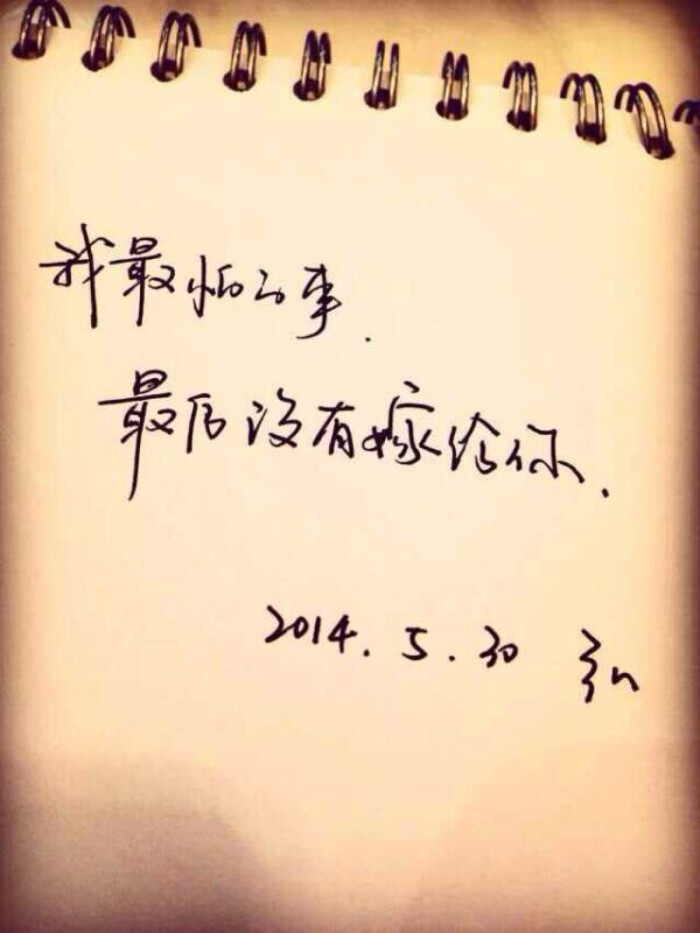 我最怕的事.
最后没有嫁给你.
2014.5.30